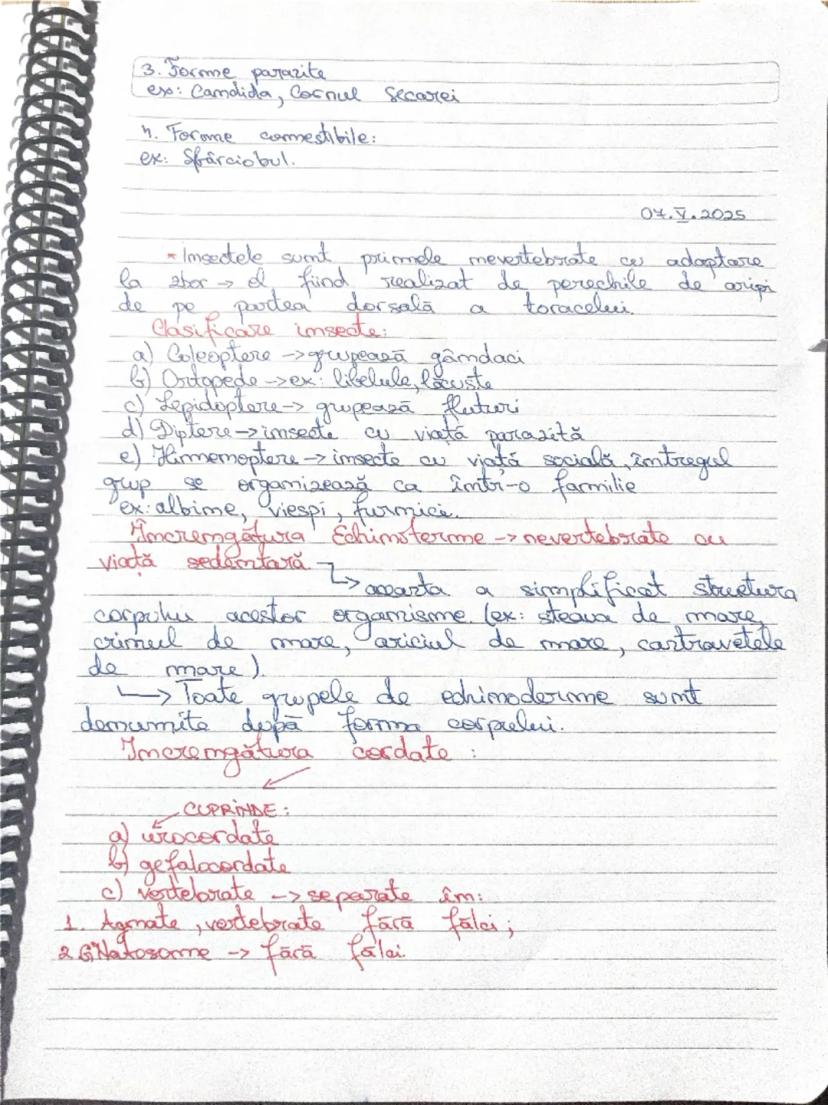 3. Forme parazite
ex: Candida, Cornul Secarei
4. Forome comestibile:
ex: Sbârciobul.
07.V.2025
* Insectele sunt primele nevertebrate cu adaptare
la zbor → el fiind realizat de perechile de aripi
de pe partea dorsală a toracelui.
Clasificare insecte:
a) Coleoptere → grupează gândaci
b) Ortopede → ex: libelule, lăcuste
c) Lepidoptere → grupează fluturi
d) Diptere → insecte cu viață parazită
e) Hinnemoptere → insecte cu viață socială, întregul
grup se organizează ca într-o familie
ex: albine, viespi, furnici.
Încrengătura Echinoterme → nevertebrate cu
viață sedentară
↳ aceasta a simplificat structura
corpului acestor organisme (ex: steaua de mare,
crinul de mare, ariciul de mare, castravetele
de mare).
↳ Toate grupele de echinoderme sunt
denumite după forma corpului.
Încrengătura cordate :
CUPRINDE:
a) urocordate
b) gefalocordate
c) vertebrate → separate în:
1. Agnate, vertebrate fără fălci;
2. GNatosome → fără fălci.